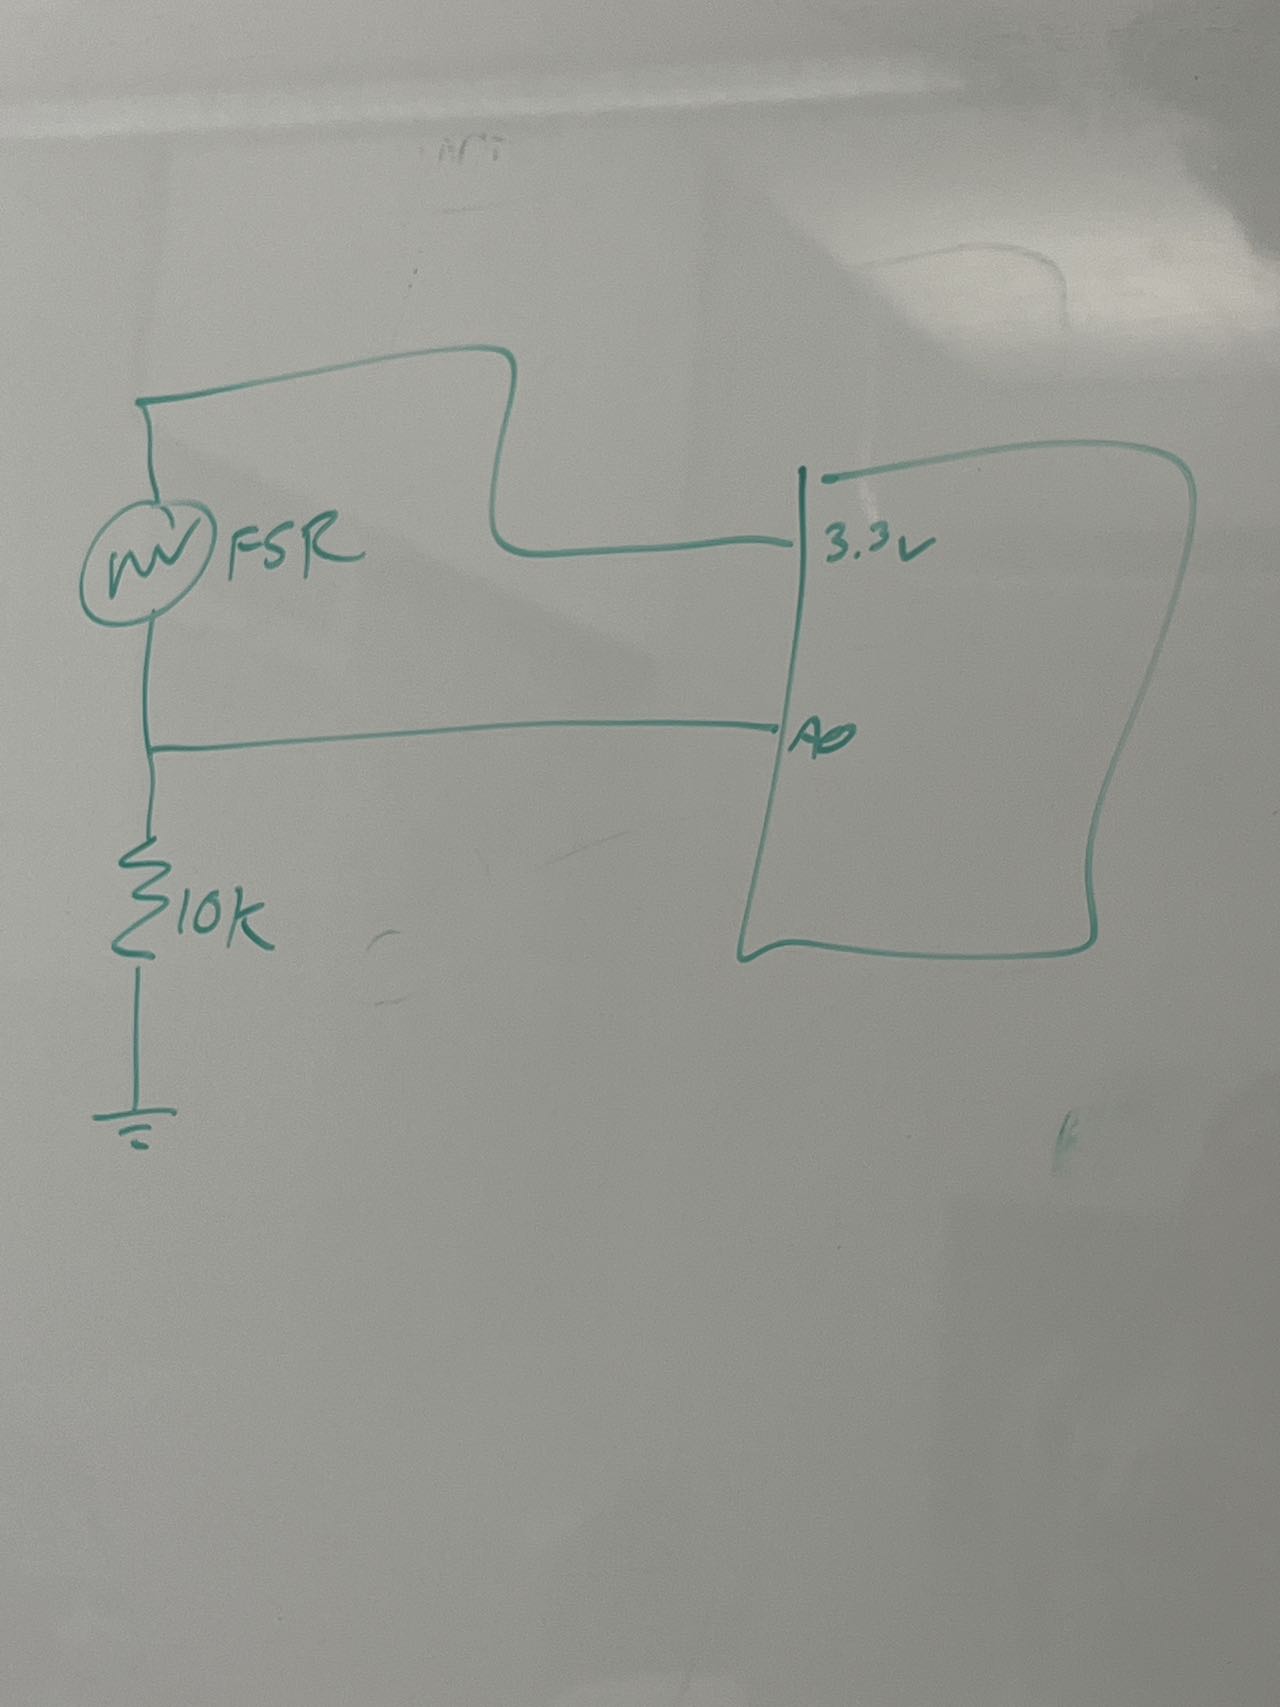 FSR
3.3v
A0
10k